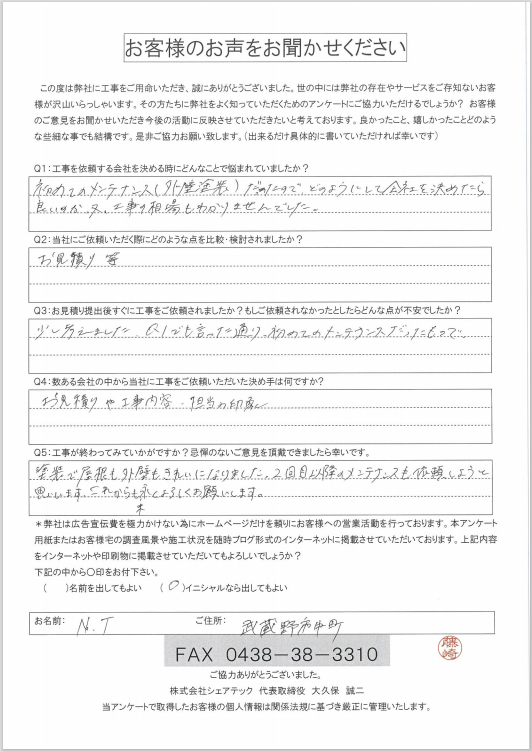 お客様のお声をお聞かせください
この度は弊社に工事をご用命いただき、誠にありがとうございました。世の中には弊社の存在やサービスをご存知ないお客
様が沢山いらっしゃいます。その方たちに弊社をよく知っていただくためのアンケートにご協力いただけるでしょうか？ お客様
のご意見をお聞かせいただき今後の活動に反映させていただきたいと考えております。良かったこと、嬉しかったことどのよう
な些細な事でも結構です。是非ご協力お願い致します。（出来るだけ具体的に書いていただければ幸いです）
Q1：工事を依頼する会社を決める時にどんなことで悩まれていましたか？
初めてのメンテナンス（外壁塗装）だったので、どのようにして会社を決めたら
良いのか、又、工事の相場もわかりませんでした。
Q2：当社にご依頼いただく際にどのような点を比較・検討されましたか？
お見積り 等
Q3：お見積り提出後すぐに工事をご依頼されましたか？もしご依頼されなかったとしたらどんな点が不安でしたか？
少し考えました。Q1でも言った通り、初めてのメンテナンスだったもので。
Q4：数ある会社の中から当社に工事をご依頼いただいた決め手は何ですか？
お見積りや工事内容・担当の印象
Q5：工事が終わってみていかがですか？忌憚のないご意見を頂戴できましたら幸いです。
塗装で屋根も外壁もきれいになりました。2回目以降のメンテナンスも依頼しようと
思います。これからも末永くよろしくお願いします。
＊弊社は広告宣伝費を極力かけない為にホームページだけを頼りにお客様への営業活動を行っております。本アンケート
用紙またはお客様宅の調査風景や施工状況を随時ブログ形式のインターネットに掲載させていただいております。上記内容
をインターネットや印刷物に掲載させていただいてもよろしいでしょうか？
下記の中から〇印をお付下さい。
（　）名前を出してもよい　（〇）イニシャルなら出してもよい
お名前： N.T ご住所： 武蔵野市中町
FAX 0438-38-3310
藤崎
ご協力ありがとうございました。
株式会社シェアテック 代表取締役 大久保 誠二
当アンケートで取得したお客様の個人情報は関係法規に基づき厳正に管理いたします。